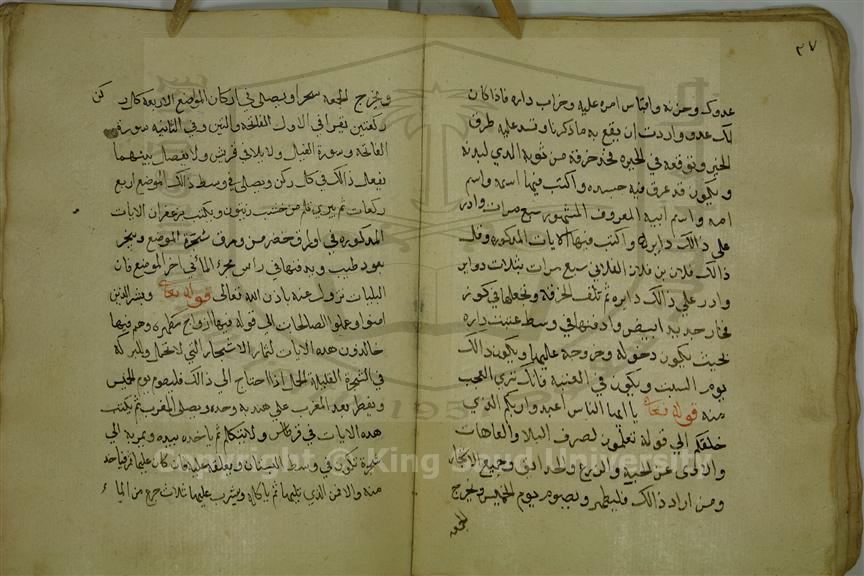 ٣٧
عدوك وحزنه وافبا س امره عليه وخراب داره فاذا كان
لك عدو واردت ان يقع به ما ذكرنا وتسد عليه طرق
الخير وتوقعه في الحيره فخذ خرقه من ثوبه الذي لبدنه
ويكون قد عرق فيه جسده واكتب فيها اسمه واسم
امه واسم ابيه المعروف المشهور سبع مرات وادر
على ذالك دايره واكتب فيها الايات المذكوره وقل
ذالك فلان بن فلان الفلاني سبع مرات بثلاث دواير
وادر على ذالك دايره ثم تلف الخرقه وتجعلها في كوز
فخار جديد ابيض وادفنها في وسط عتبت داره
بحيث يكون دخوله وخروجه عليها ويكون ذالك
يوم السبت ويكون في العشيه فانك ترى العجب
منه قوله تعالى يا ايها الناس اعبدوا ربكم الذي
خلقكم الى قوله تعلمون لصرف البلا والعاهات
والاذى عن الجنه والزرع والحدائق وجميع الاشجار
ومن اراد ذالك فليطهر ويصوم يوم الخميس ويخرج
الجمعه
ويخرج الجمعه سحرا ويصلى في اركان الموضع الاربعه كل ركن
ركعتين يقرا في الاولى الفاتحه والتين وفي الثانيه سورة
الفاتحه وسورة الفيل ولايلاف قريش ولا يفصل بينهما
يفعل ذالك في كل ركن ويصلى في وسط ذالك الموضع اربع
ركعات ثم يبري قلم من خشب زيتون ويكتب بزعفران الايات
المذكوره في اوراق خضر من ورق شجرة الموضع وبخر
بعود طيب ويدفنها في راس مجرا الماء في اخر الموضع فان
البليات تزول عنه باذن الله تعالى قوله تعالى وبشر الذين
امنوا وعملوا الصالحات الى قوله فيها ازواج مطهره وهم فيها
خالدون هذه الايات لثمار الاشجار التي لا تحمل والبركه
في الشجرة القليلة الحمل اذا احتاج الى ذالك فليصوم يوم الخميس
ويفطر بعد المغرب على هندبه وحده ويصلى المغرب ثم يكتب
هذه الايات في قرطاس ولا يتكلم ثم ياخذه بيده ويمر به الى
شجرة تكون في وسط البستان ويعلقه عليها فان كان عليها ثمر فياخذ
منه والا فمن الذي يليها ثم ياكله ويشرب عليها ثلاث جرع من الماء
Copyright © King Saud University
1957